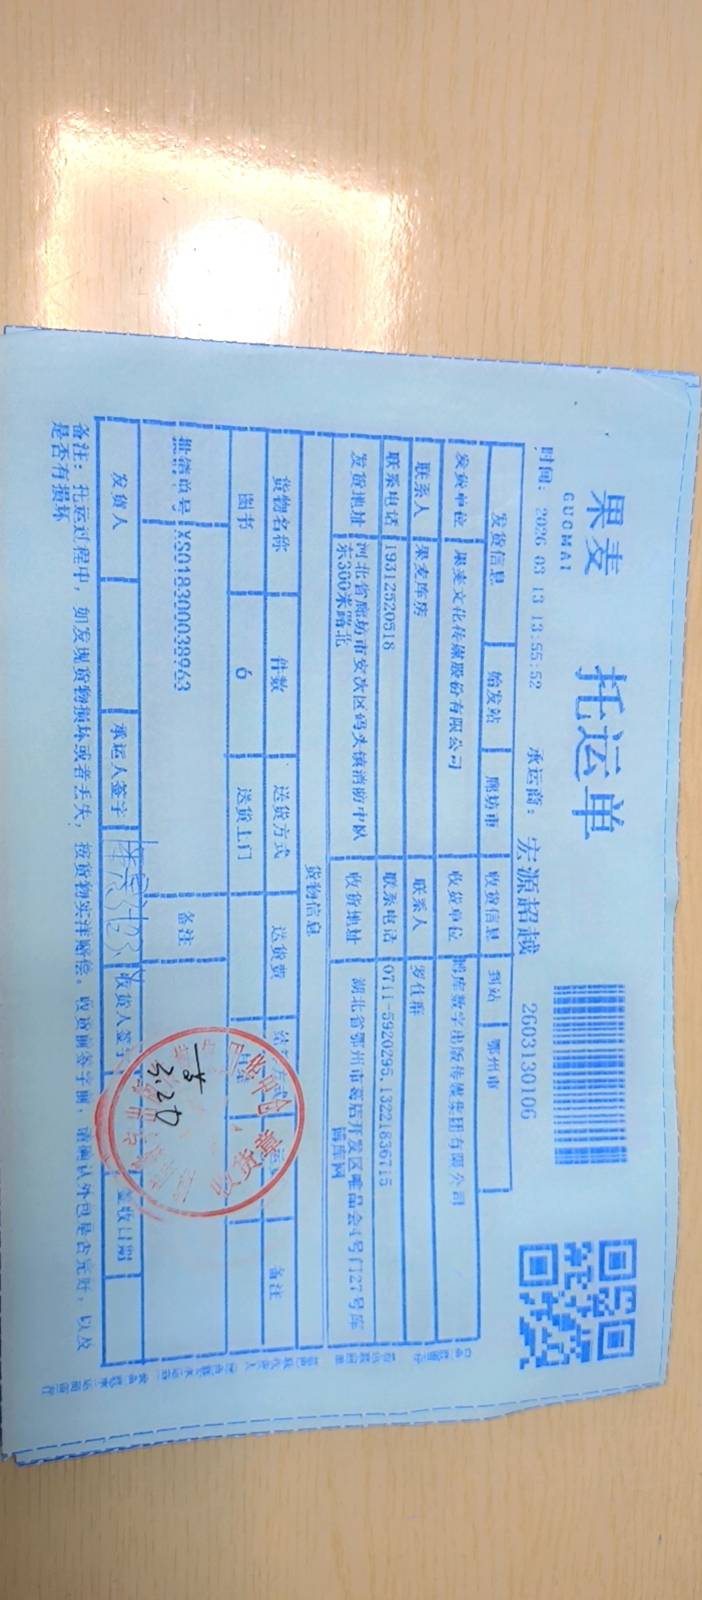 果麦 托运单
GUOMAI
时间：2026-03-13 13:55:52 承运商：宏源超越 2603130106
发货信息 始发站 廊坊市 收货信息 到站 鄂州市
发货单位 果麦文化传媒股份有限公司 收货单位 博库数字出版传媒集团有限公司
联系人 果麦库房 联系人 罗仕群
联系电话 19312520518 联系电话 0711-5920295,13221836715
发货地址 河北省廊坊市安次区码头镇消防中队 收货地址 湖北省鄂州市葛店开发区唯品会4号门27号库
东300米路北 博库网
货物信息
货物名称 件数 送货方式 送货费 结算方式 备注
图书 6 送货上门
批销单号 XS018300038963 备注
发货人 承运人签字 收货人签字 签收日期
3.20
收货章
备注：托运过程中，如发现货物损坏或者丢失，按货物实洋赔偿。收货前签字前，请确认外包是否完好，以及
是否有损坏